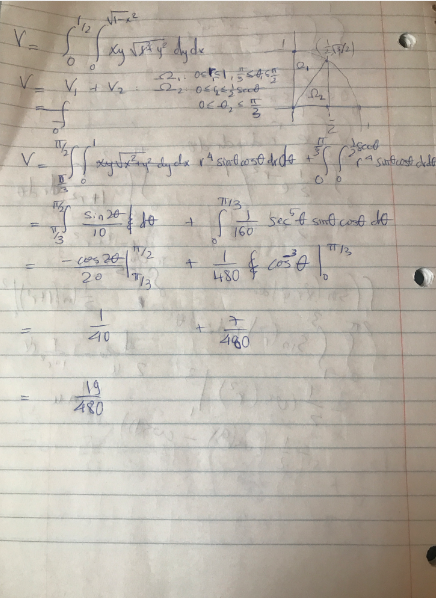 V = ∫₀^{1/2} ∫₀^{√1-x²} xy √x²+y² dy dx
V = V₁ + V₂ Ω₁: 0≤r≤1, π/3≤θ≤π/2
= ∫₀ Ω₂: 0≤r≤½secθ
0≤θ₂≤π/3
1 (½, √3/2)
Ω₁
Ω₂
1/2
V = ∫_{π/3}^{π/2} ∫₀¹ xy√x²+y² dy dx r⁴ sinθcosθ drdθ + ∫₀^{π/3} ∫₀^{½secθ} r⁴ sinθcosθ drdθ
= ∫_{π/3}^{π/2} sin2θ/10 dθ + ∫₀^{π/3} 1/160 sec⁵θ sinθcosθ dθ
= -cos2θ/20 |_{π/3}^{π/2} + 1/480 cos⁻³θ |₀^{π/3}
= 1/40 + 7/480
= 19/480